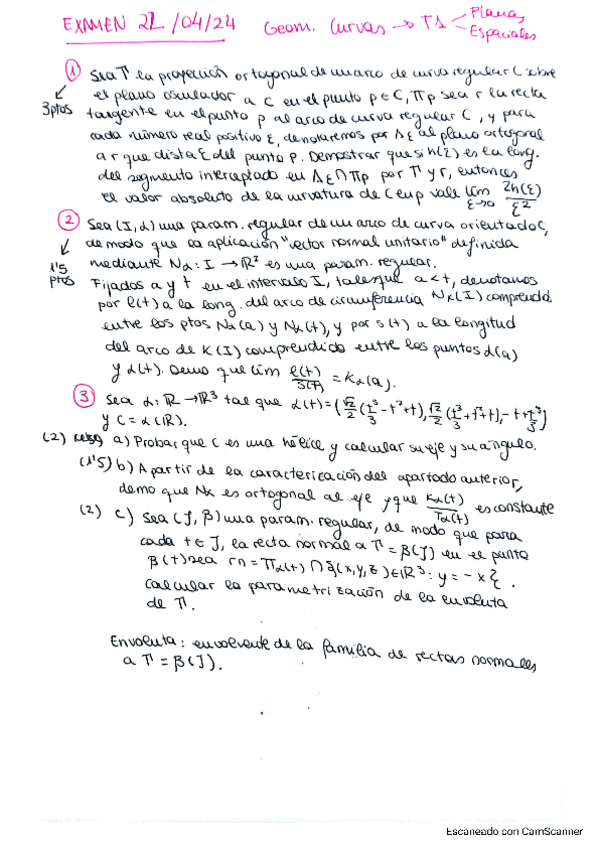 EXAMEN 22/04/24 Geom. Curvas → T1 < Planas
Espaciales
① Sea Γ la proyección ortogonal de un arco de curva regular C sobre
3ptos el plano osculador a C en el punto p ∈ C, Πp sea r la recta
tangente en el punto p al arco de curva regular C, y para
cada número real positivo ε, denotaremos por Δε al plano ortogonal
a r que dista ε del punto p. Demostrar que si h(ε) es la long.
del segmento interceptado en Δε ∩ Πp por Γ y r, entonces
el valor absoluto de la curvatura de C en p vale lim ε→0 2h(ε)/ε²
② Sea (I, α) una param. regular de un arco de curva orientado C,
de modo que la aplicación "vector normal unitario" definida
1'5 ptos mediante Nα: I → R² es una param. regular.
Fijados a y t en el intervalo I, tales que a < t, denotamos
por l(t) a la long. del arco de circunferencia Nα(I) comprendido
entre los ptos Nα(a) y Nα(t), y por s(t) a la longitud
del arco de α(I) comprendido entre los puntos α(a)
y α(t). Demo que lim l(t)/s(t) = Kα(a).
③ Sea α: R → R³ tal que α(t) = (√2/2 (t³/3 - t² + t), √2/2 (t³/3 + t² + t), -t + t³/3)
y C = α(R).
(2) a) Probar que C es una hélice y calcular su eje y su ángulo.
(1'5) b) A partir de la caractericación del apartado anterior,
demo que Nα es ortogonal al eje y que Kα(t)/Tα(t) es constante
(2) c) Sea (J, β) una param. regular, de modo que para
cada t ∈ J, la recta normal a Γ = β(J) en el punto
β(t) sea rn = Πα(t) ∩ {(x,y,z) ∈ R³ : y = -x}.
Calcular la parametrización de la evoluta
de Γ.
Envoluta: envolvente de la familia de rectas normales
a Γ = β(J).
Escaneado con CamScanner